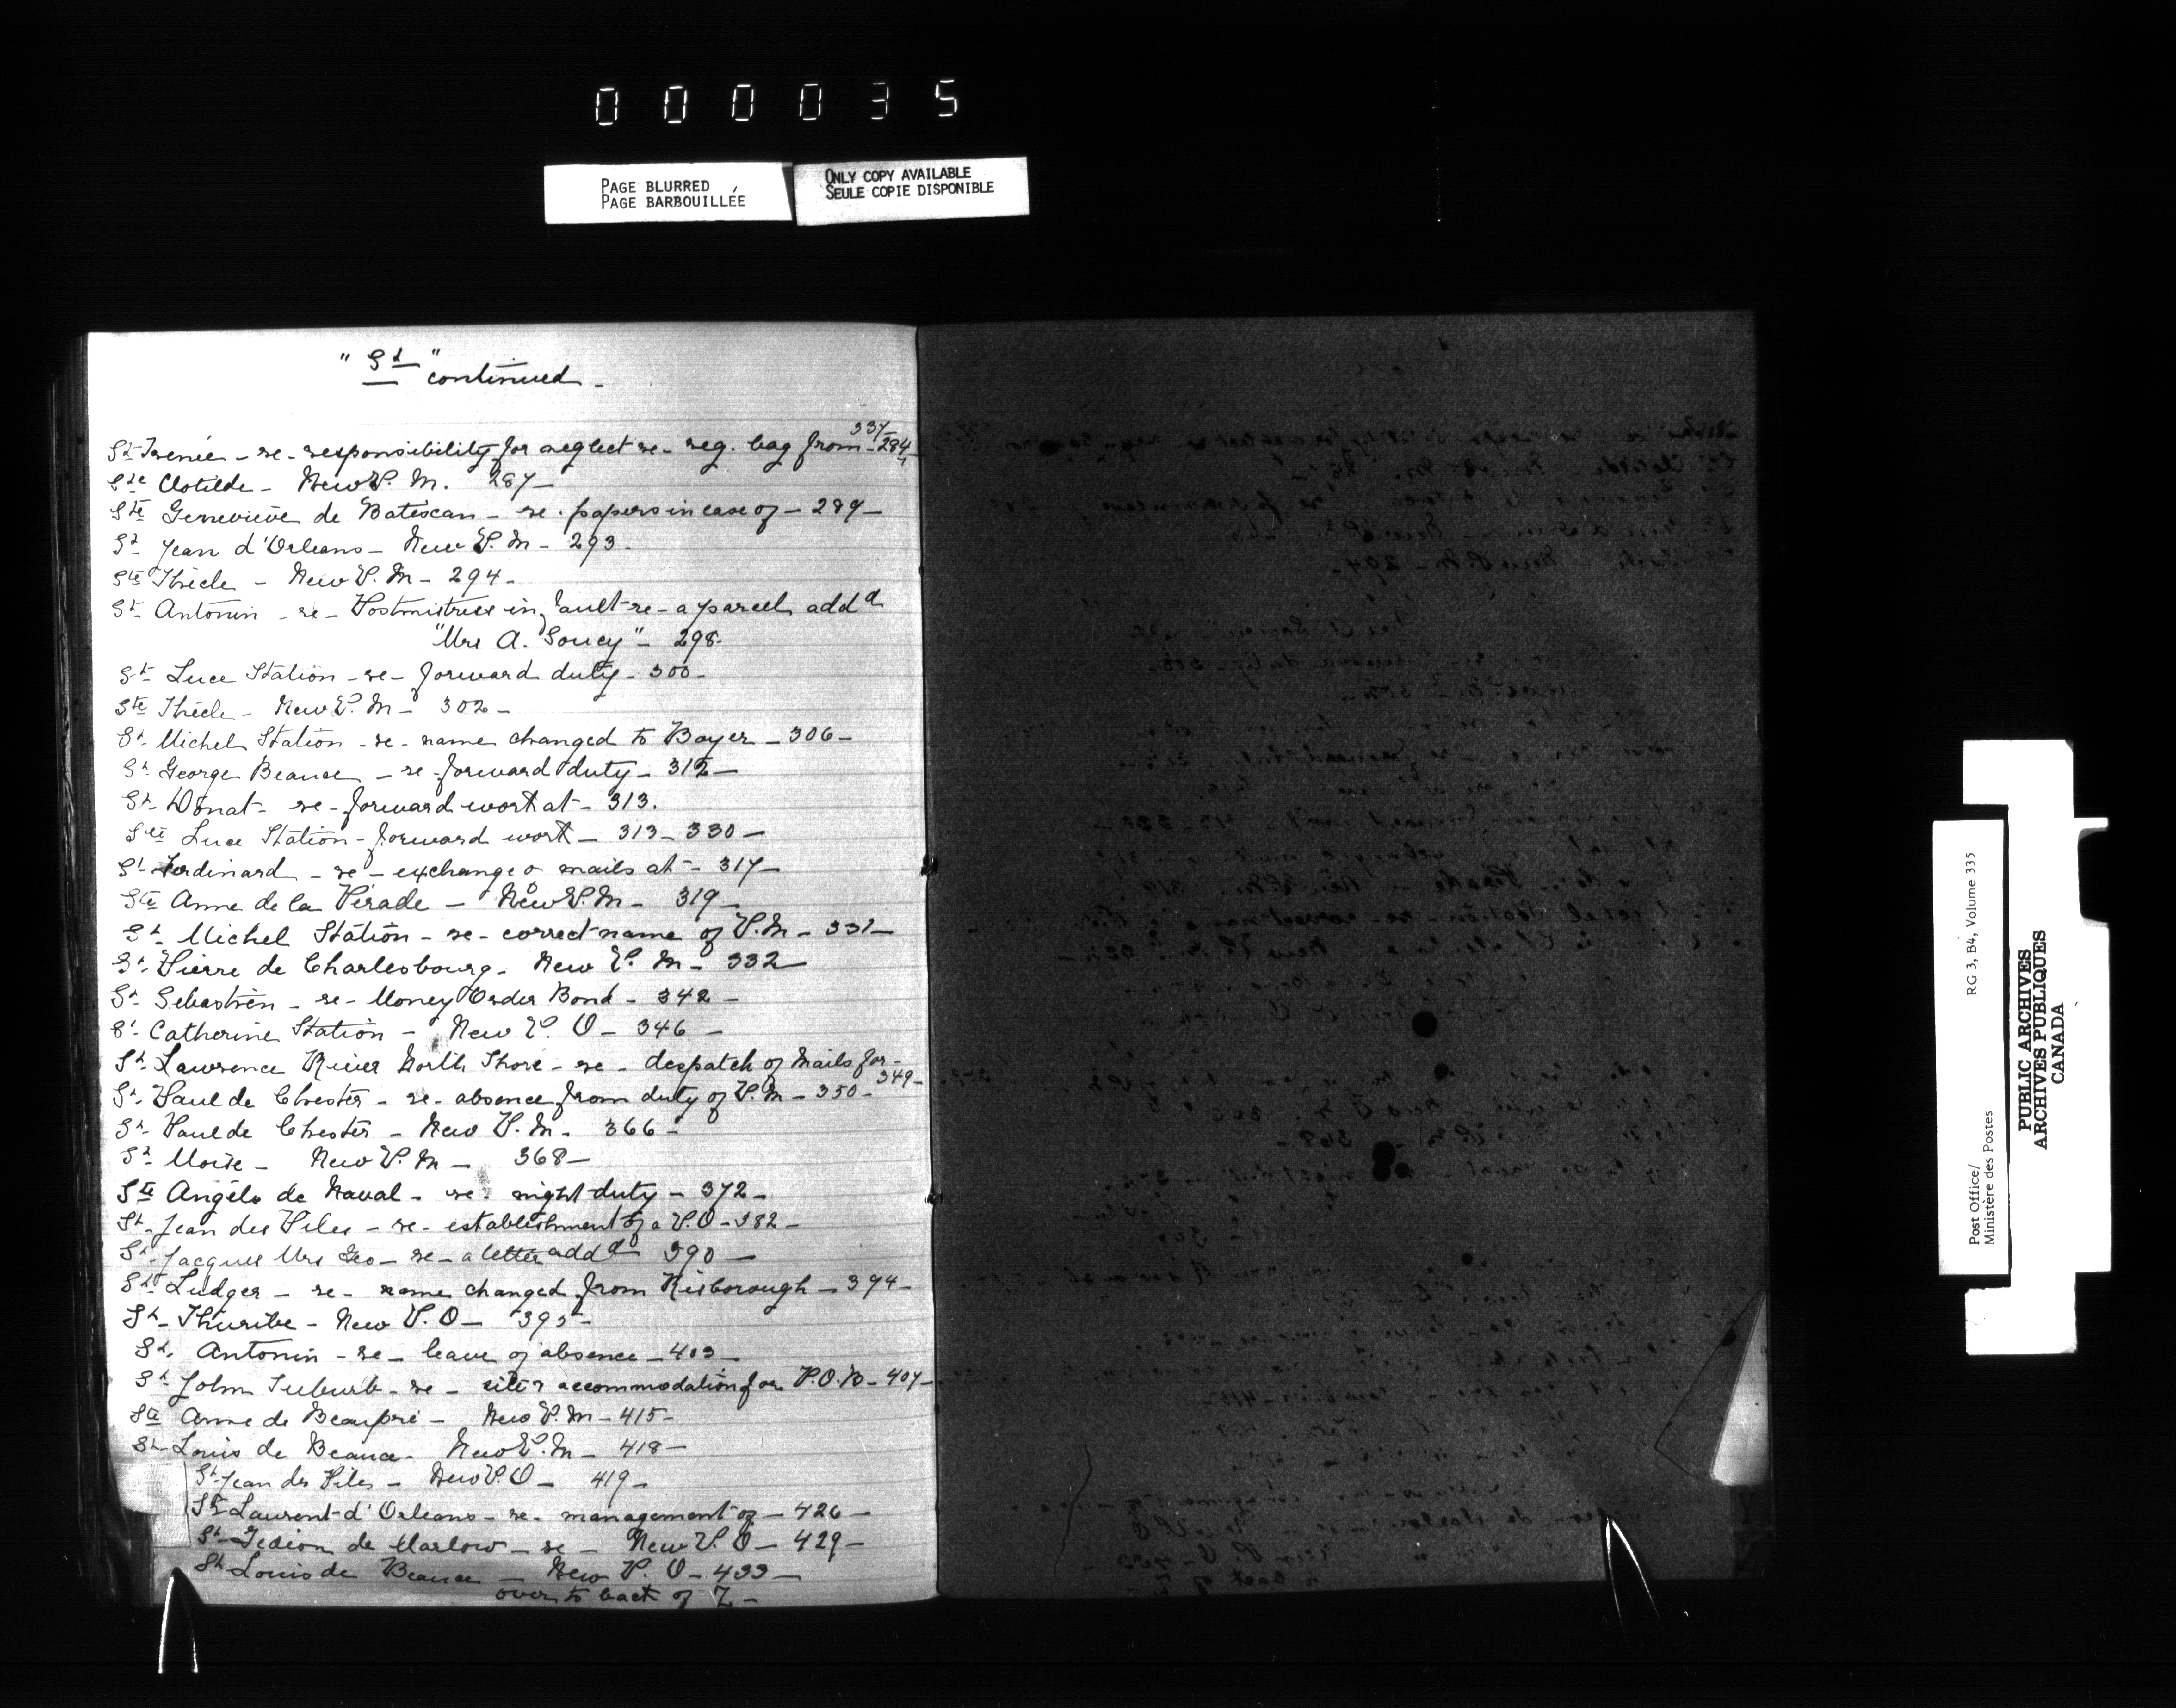 000035
PAGE BLURRED
PAGE BARBOUILLÉE
ONLY COPY AVAILABLE
SEULE COPIE DISPONIBLE
"St" continued -
337
St Irenée - re - responsibility for neglect re - reg. bag from - 284
Ste Clotilde - New P. M. 287 -
Ste Genevieve de Batiscan - re. papers in case of - 289 -
St Jean d'Orleans - New P. M - 293 -
Ste Thècle - New P. M - 294 -
St Antonin - re - Postmistress in fault - re - a parcel add d
"Mrs A. Soucy" - 298 -
St Luce Station - re - forward duty - 300 -
Ste Thècle - New P. M - 302 -
St Michel Station - re - name changed to Boyer - 306 -
St George Beauce - re - forward duty - 312 -
St Donat - re - forward work at - 313.
Ste Luce Station - forward work - 313 - 330 -
St Ferdinard - re - exchange o mails at - 317 -
Ste Anne de la Pérade - New P. M - 319 -
St Michel Station - re - correct name of P. M - 331 -
St Pierre de Charlesbourg - New P. M - 332 -
St Sebastien - re - Money Order Bond - 342 -
St Catherine Station - New P. O - 346 -
St Lawrence River North Shore - re - despatch of Mails for -
349 -
St Paul de Chester - re - absence from duty of P. M - 350 -
St Paul de Chester - New P. M. 366 -
St Moise - New P. M - 368 -
Ste Angéle de Naval - re - night duty - 372 -
St Jean des Piles - re - establishment of a P. O - 382 -
St Jacques Mrs Geo - re - a letter add d 390 -
St Ludger - re - name changed from Risborough - 394 -
St Thuribe - New P. O - 395 -
St Antonin - re - leave of absence - 403 -
St John Suburb - re - site & accommodation for P. O. B - 407 -
Ste Anne de Beaupré - New P. M - 415 -
St Louis de Beauce - New P. M - 418 -
St Jean des Piles - New P. O - 419 -
St Laurent d'Orleans - re - management of - 426 -
St Gedéon de Marlow - re - New P. O - 429 -
St Louis de Beauce - New P. O - 433 -
over to back of Z -
Post Office/
Ministère des Postes
RG 3, B4, Volume 335
PUBLIC ARCHIVES
ARCHIVES PUBLIQUES
CANADA